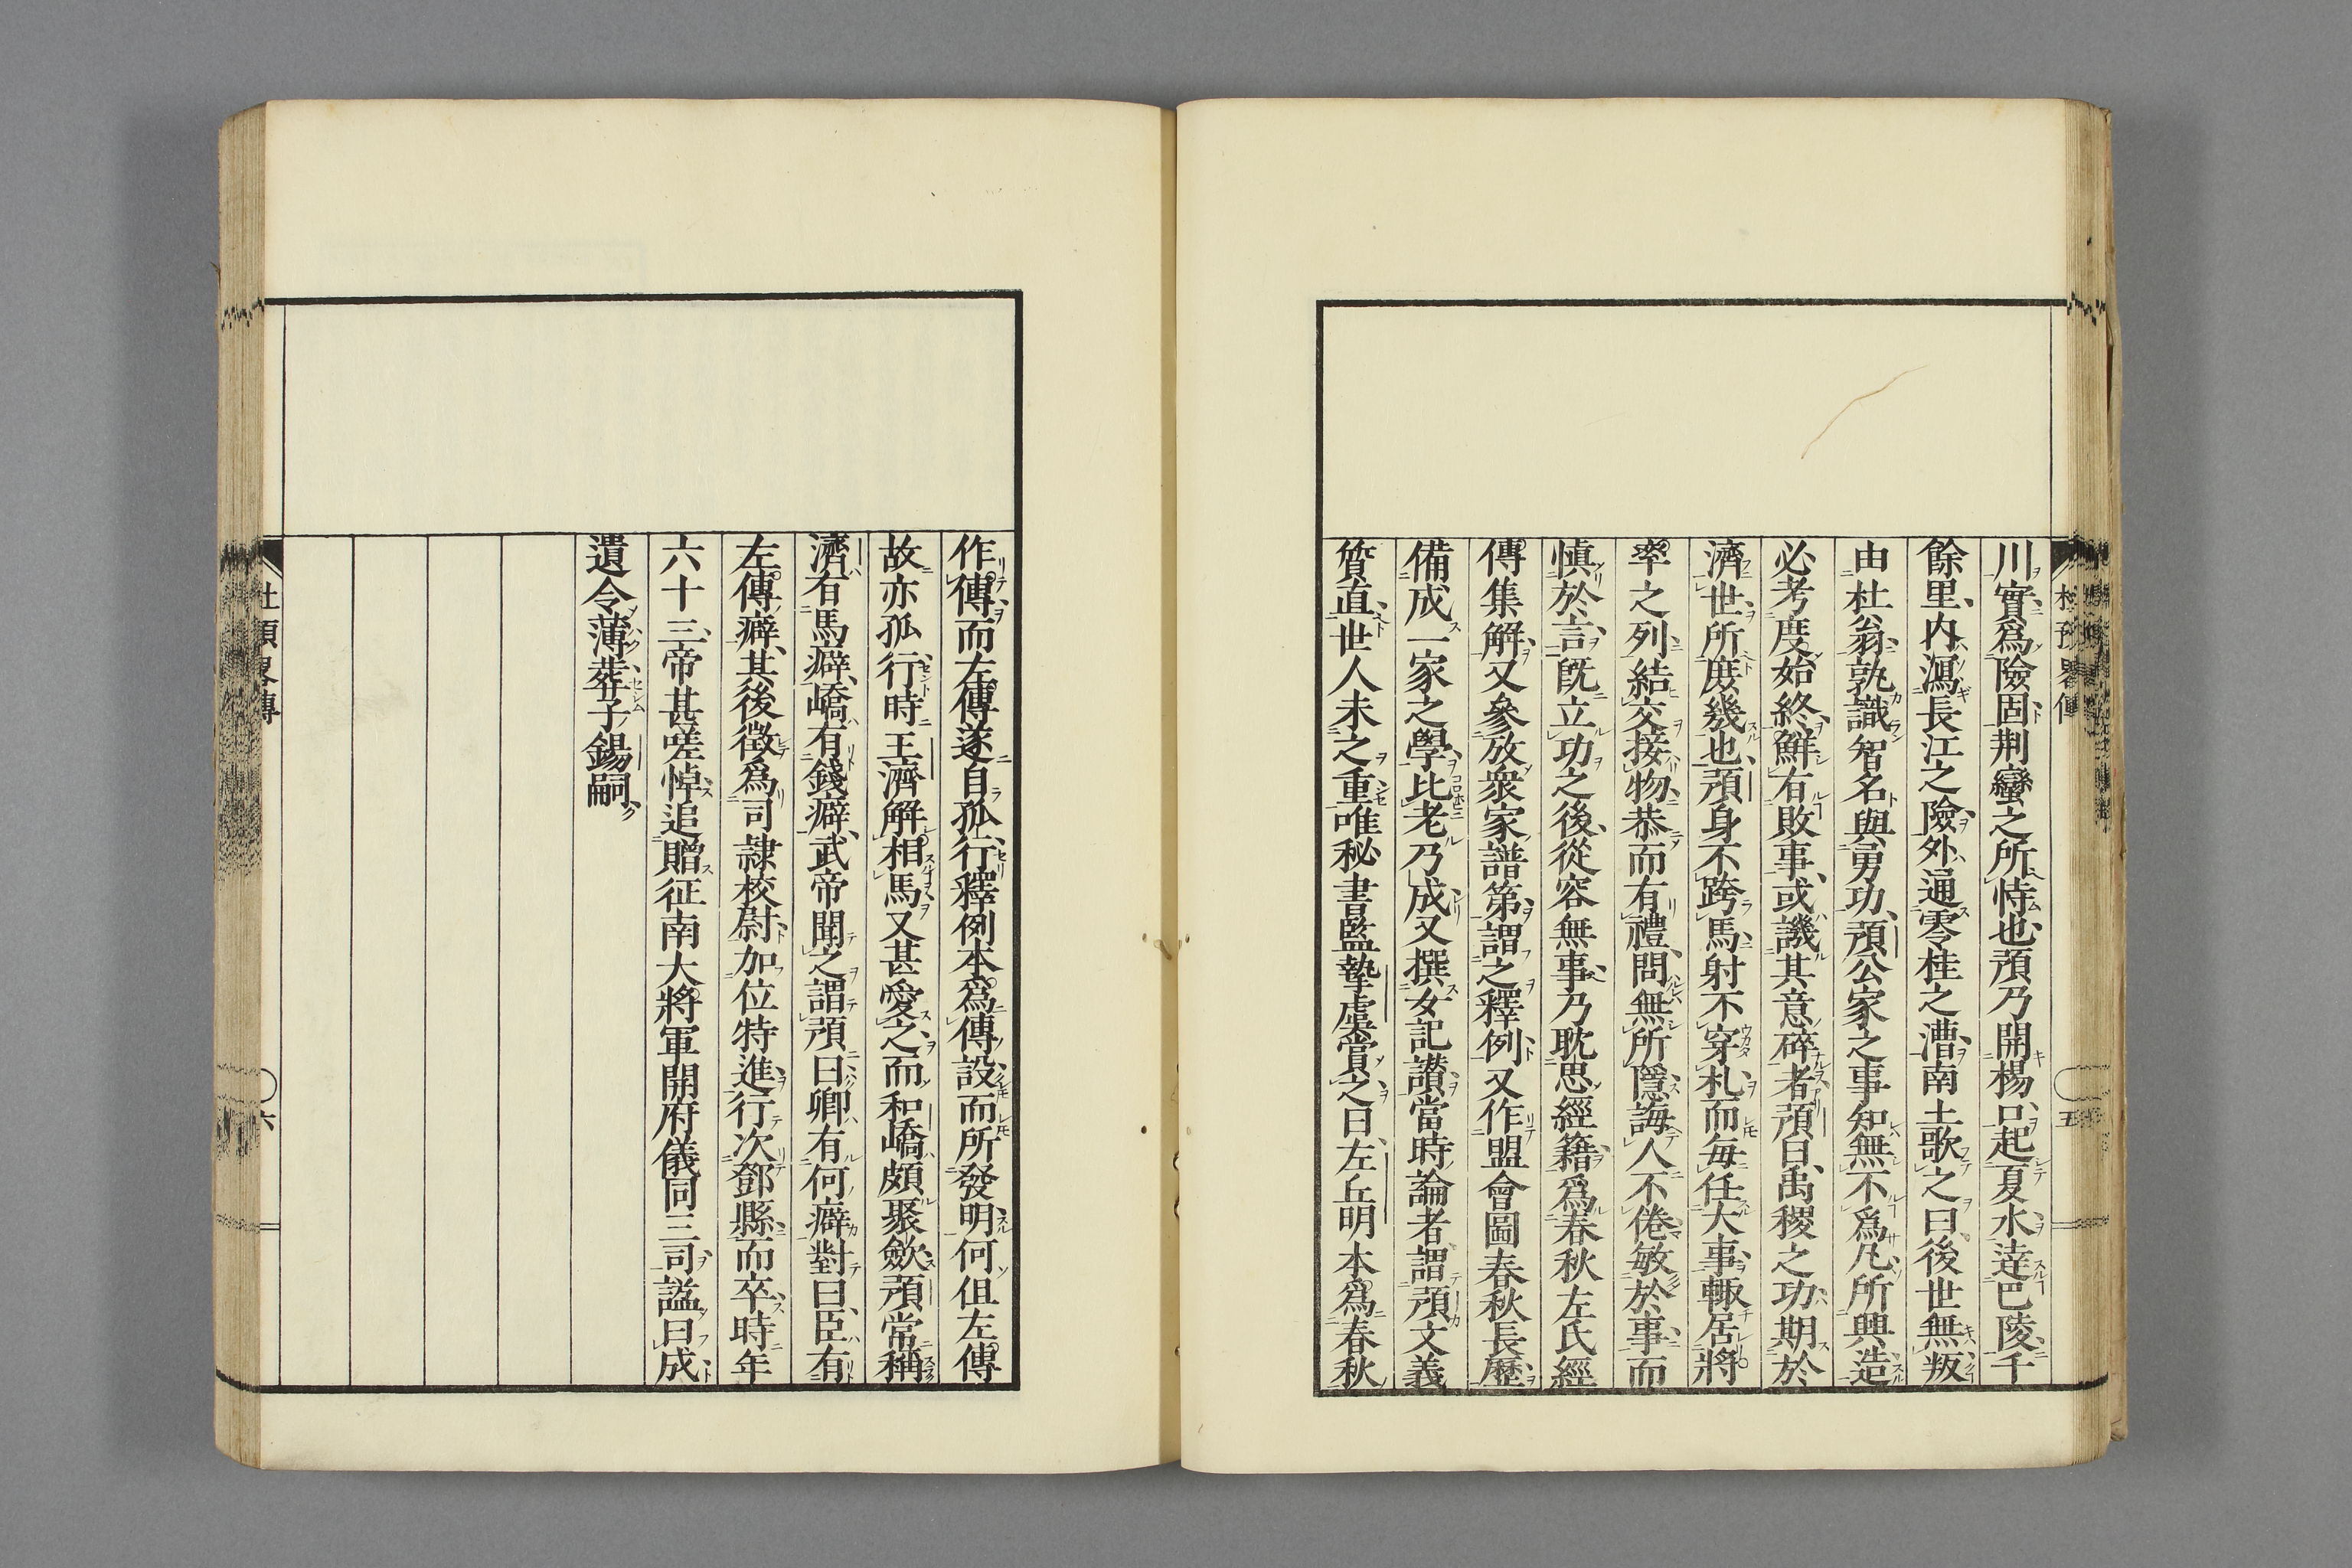 川實爲險固荆蠻之所恃也預乃開楊口起夏水達巴陵千
餘里内瀉長江之險外通零桂之漕南土歌之曰後世無叛
由杜翁孰識智名與勇功預公家之事知無不爲凡所興造
必考度始終鮮有敗事或譏其意碎者預曰禹稷之功期於
濟世所庶幾也預身不跨馬射不穿札而每任大事輙居將
率之列結交接物恭而有禮問無所隱誨人不倦敏於事而
愼於言既立功之後從容無事乃耽思經籍爲春秋左氏經
傳集解又參攷衆家譜第謂之釋例又作盟會圖春秋長歷
備成一家之學比老乃成又撰女記讃當時論者謂預文義
質直世人未之重唯秘書監摯虞賞之曰左丘明本爲春秋
杜預畧傳
五
作傳而左傳遂自孤行釋例本爲傳設而所發明何但左傳
故亦孤行時王濟解相馬又甚愛之而和嶠頗聚斂預常稱
濟有馬癖嶠有錢癖武帝聞之謂預曰卿有何癖對曰臣有
左傳癖其後徵爲司隷校尉加位特進行次鄧縣而卒時年
六十三帝甚嗟悼追贈征南大將軍開府儀同三司謚曰成
遺令薄葬子錫嗣
杜預畧傳
六